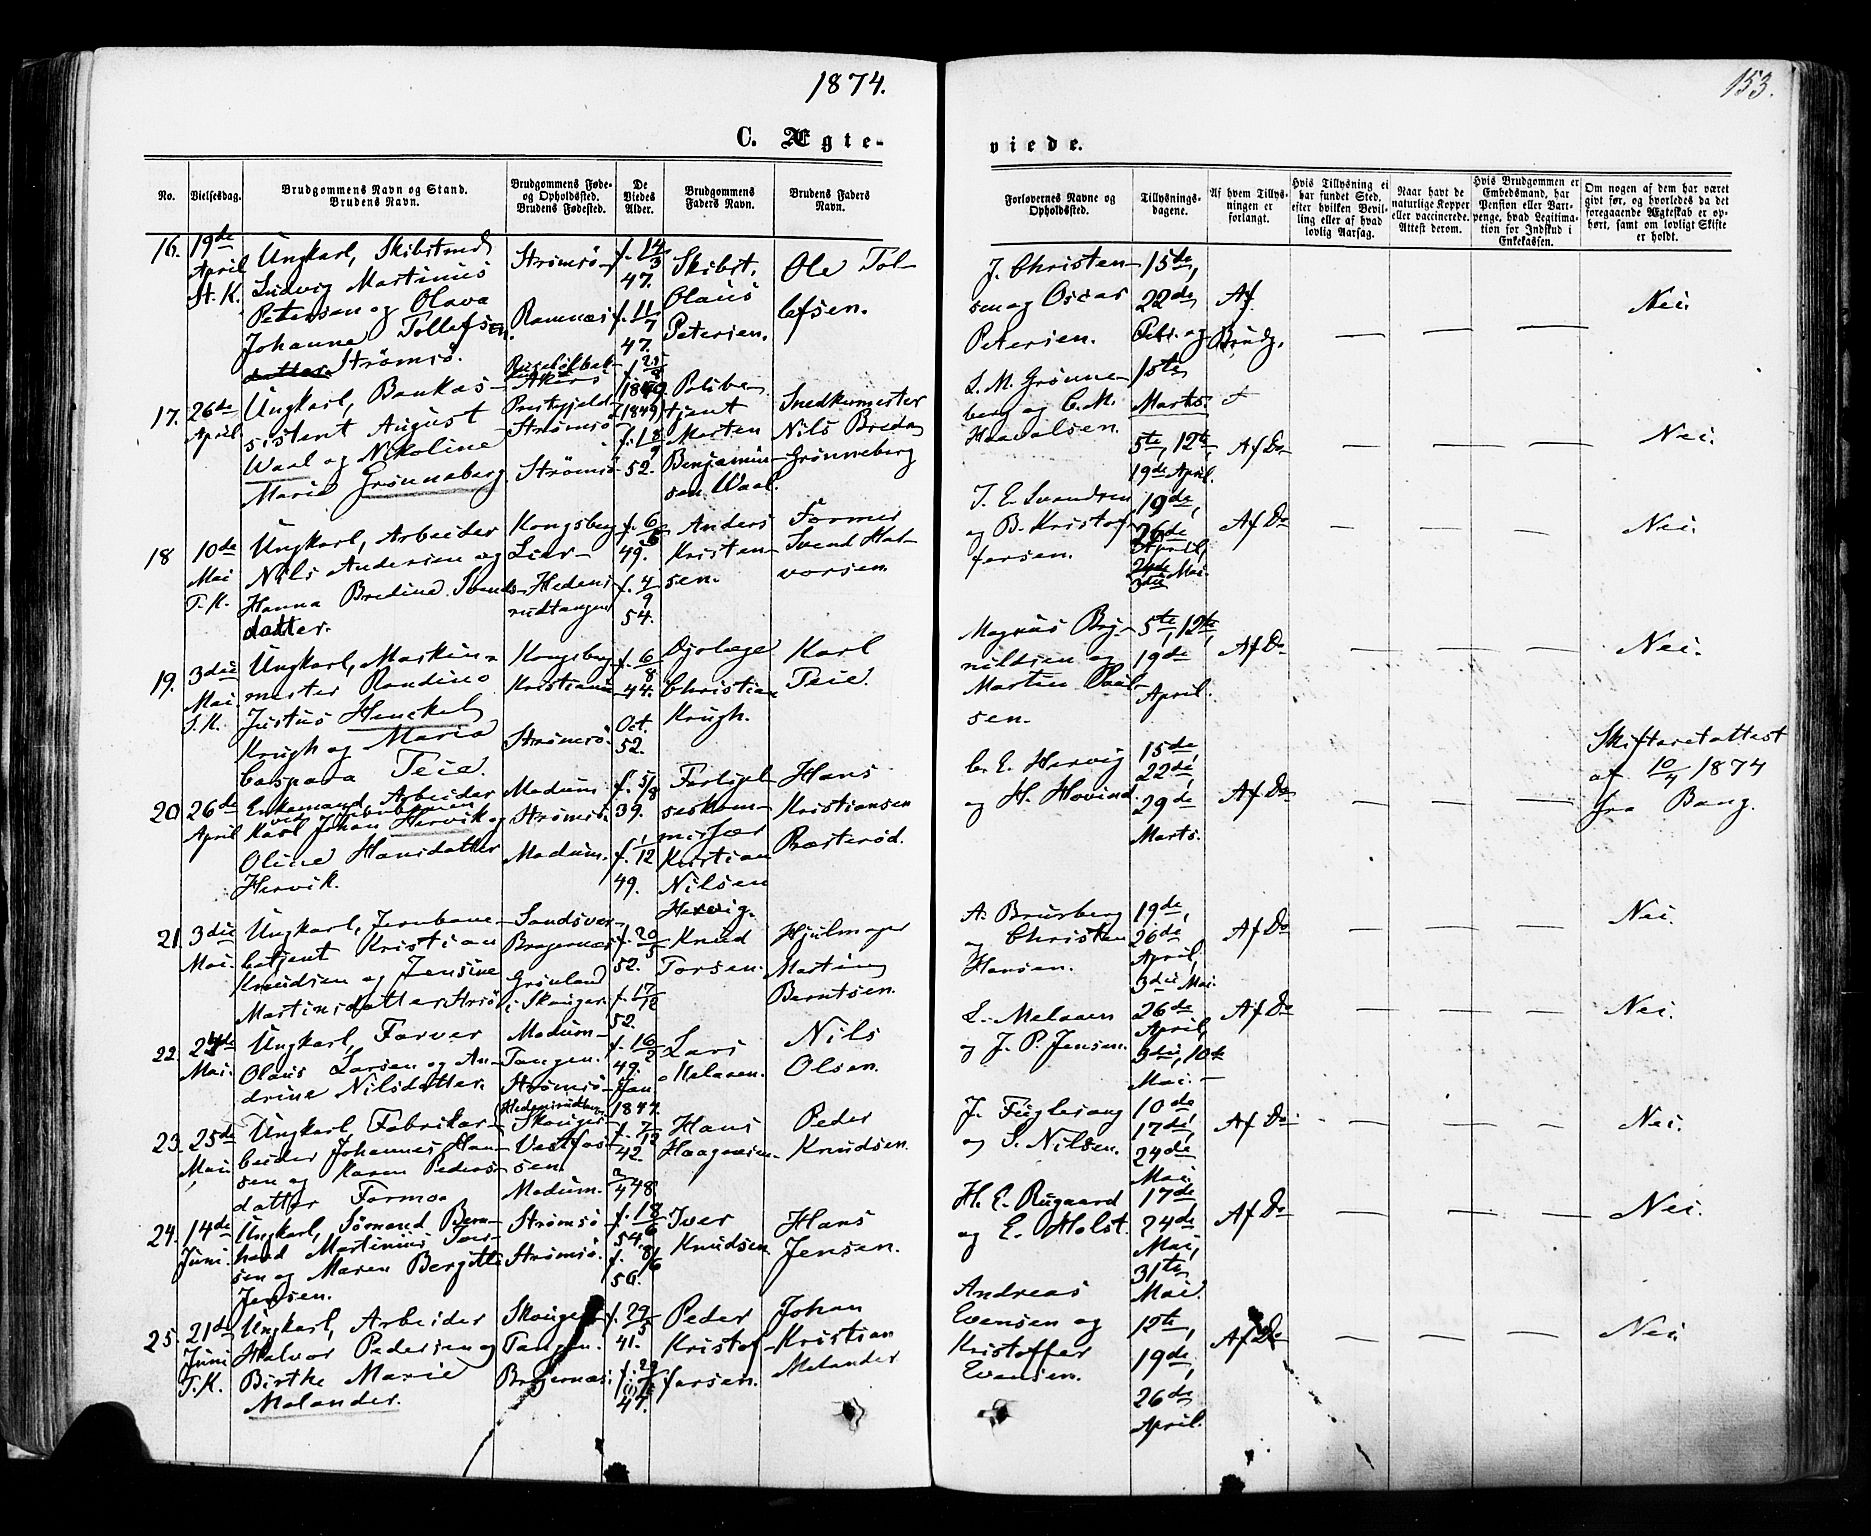 1874.
153.
C. Ægte-
viede.
No.
Vielsesdag.
Brudgommens Navn og Stand.
Brudens Navn.
Brudgommens Føde-
og Opholdssted.
Brudens Fødested.
De
Viedes
Alder.
Brudgommens
Faders Navn.
Brudens Faders
Navn.
Forlovernes Navne og
Opholdssted.
Tillysnings-
dagene.
Af hvem Tillys-
ningen er
forlangt.
Hvis Tillysning ei
har fundet Sted,
efter hvilken Bevil-
ling eller af hvad
lovlig Aarsag.
Naar havt de
naturlige Kopper
eller vaccinerede.
Attest derom.
Hvis Brudgommen er
Embedsmand, har
Pension eller Vart-
penge, hvad Legitima-
tion for Indskud i
Enkekassen.
Om nogen af dem har været
givt før, og hvorledes da det
foregaaende Ægteskab er op-
hørt, samt om lovligt Skifte
er holdt.
16.
19de
April
St. K.
Ungkarl, Skibstmd
Ludvig Martinius
Petersen og Olava
Johanne Tollefsen.
Strømsø.
Strømsø
Ramnæs
f. 14/3
47.
f. 11/7
47.
Skibst.
Olaus
Petersen.
Ole Tol-
lefsen.
J. Christen-
sen og Oscar
Petersen.
15de,
22de
Febr. og
1ste
Marts.
Af
Brudg.
Nei.
17.
26de
April.
Ungkarl, Bankas-
sistent August
Waal og Nikoline
Marie Grønneberg.
Akers
Prestegjeld
Strømsø
Strømsø
f. 25/8
(1849)
f. 18/9
52.
Politbe-
tjent
Morten
Benjamin-
sen Waal.
Snedkermester
Nils Breda
Grønneberg
L. M. Grønne-
berg og C. M.
Haavalsen.
5te, 12te,
19de April.
Af Do
Nei.
18
10de
Mai
T. K.
Ungkarl, Arbeider
Nils Andersen og
Hanna Bredine Svends-
datter.
Kongsberg
Lier
Hedens-
rudtangen
f. 6/6
49.
f. 4/9
54.
Anders
Kristen-
sen.
Former
Svend Hal-
vorsen.
J. E. Svendsen
og B. Kristof-
fersen.
19de,
26de
April,
3die Mai.
Af Do
Nei.
19.
3die
Mai.
S. K.
Ungkarl, Maskin-
mester Randino
Justus Henckel
Krugh og Maria
Caspara Teie.
Kongsberg
Kristiania
Strømsø.
f. 6/8
44.
Oct.
52.
Christian
Krugh.
Karl
Teie.
Magnus Bry-
nildsen og
Martin Paul-
sen.
5te, 12te,
19de
April.
Af Do
Nei.
20
26de
April
Enkemand, Arbeider
Karl Johan Hervik og
Oline Hansdatter
Hervik.
Modum
Strømsø.
Modum.
f. 5/8
39.
f. 1/12
49.
Forligel-
seskom-
missær
Kristian
Nilsen
Hervig.
Hans
Kristiansen
Præsterød.
C. E. Hervig
og H. Hovind.
15de
22de,
29de
Marts.
Af Do
Skifteretattest
af 10/4 1874
fra Bang.
21.
3die
Mai.
Ungkarl, Jernbane-
betjent Kristian
Knudsen og Jensine
Martinsdatter Strømsø
Sandsvær
Bragernæs
Grønland
i Skouger.
f. 20/5
52.
f. 17/12
52.
Knud
Torsen.
Hjulmager
Martin
Berntsen.
A. Brusberg
og Christen
Hansen.
19de,
26de
April,
3die Mai.
Af Do
Nei.
22.
24de
Mai.
Ungkarl, Farver
Olaus Larsen og An-
drine Nilsdatter.
Modum
Tangen.
Strømsø
f. 16/2
49.
Jan
1847.
Lars
Melaaen.
Nils
Olsen.
L. Melaaen
og J. P. Jensen.
26de
April,
3die, 10de
Mai.
Af Do
Nei.
23.
25de
Mai.
Ungkarl Fabrikar-
beider Johannes Han-
sen og Karen Peders-
datter Formoe
Skouger
Vestfos-
sen.
Modum.
f. 7/12
42.
2/4 48.
Hans
Haagensen.
Peder
Knudsen.
J. Fuglesang
og S. Nilsen.
10de
17de,
24de
Mai.
Af Do
Nei.
24.
14de
Juni.
Ungkarl, Sømand Bern-
hard Martinius Iver-
sen og Maren Bergitte
Jensen.
Strømsø
Strømsø.
f. 18/6
54.
f. 8/6
50.
Iver
Knudsen
Hans
Jensen.
H. E. Rugaard
og E. Holst.
17de
24de
Mai,
31te
Mai.
Af Do
Nei.
25.
21de
Juni
T. K.
Ungkarl, Arbeider
Halvor Pedersen og
Birthe Marie
Melander.
Skouger
Tangen.
Bragernæs.
f. 29/5
41.
47.
Peder
Kristof-
fersen.
Johan
Kristian
Melander
Andreas
Evensen og
Kristoffer
Evensen.
12te,
19de,
26de
April.
Af Do
Nei.